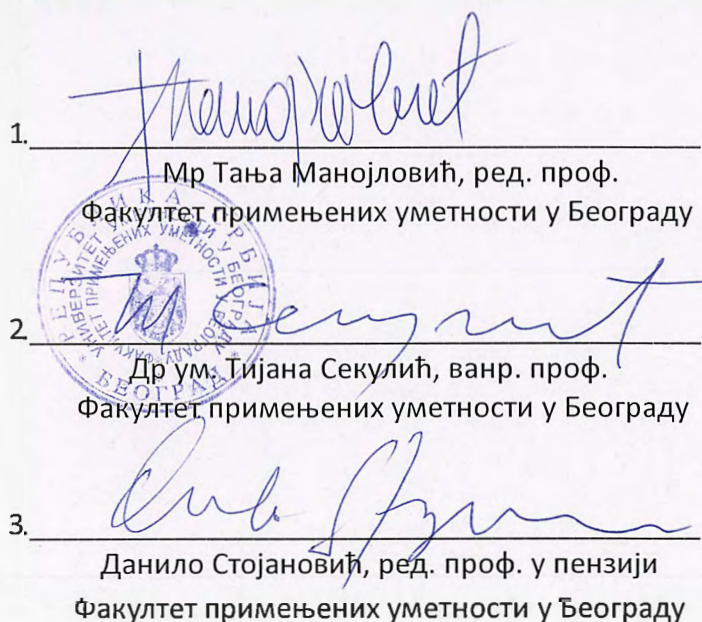 1.
Мр Тања Манојловић, ред. проф.
Факултет примењених уметности у Београду
РЕПУБЛИКА СРБИЈА
УНИВЕРЗИТЕТ УМЕТНОСТИ У БЕОГРАДУ
ФАКУЛТЕТ ПРИМЕЊЕНИХ УМЕТНОСТИ БЕОГРАДУ
БЕОГРАД
2.
Др ум. Тијана Секулић, ванр. проф.
Факултет примењених уметности у Београду
3.
Данило Стојановић, ред. проф. у пензији
Факултет примењених уметности у Београду